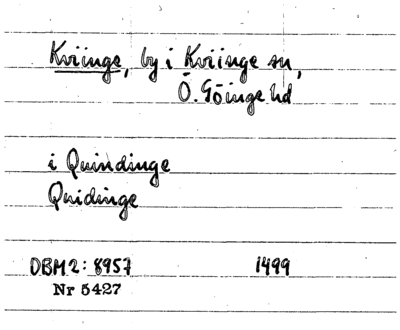 Kviinge, by i Kviinge sn,
Ö. Göinge hd
i Quindinge
Quidinge
DBM 2: 8957 1499
Nr 5427